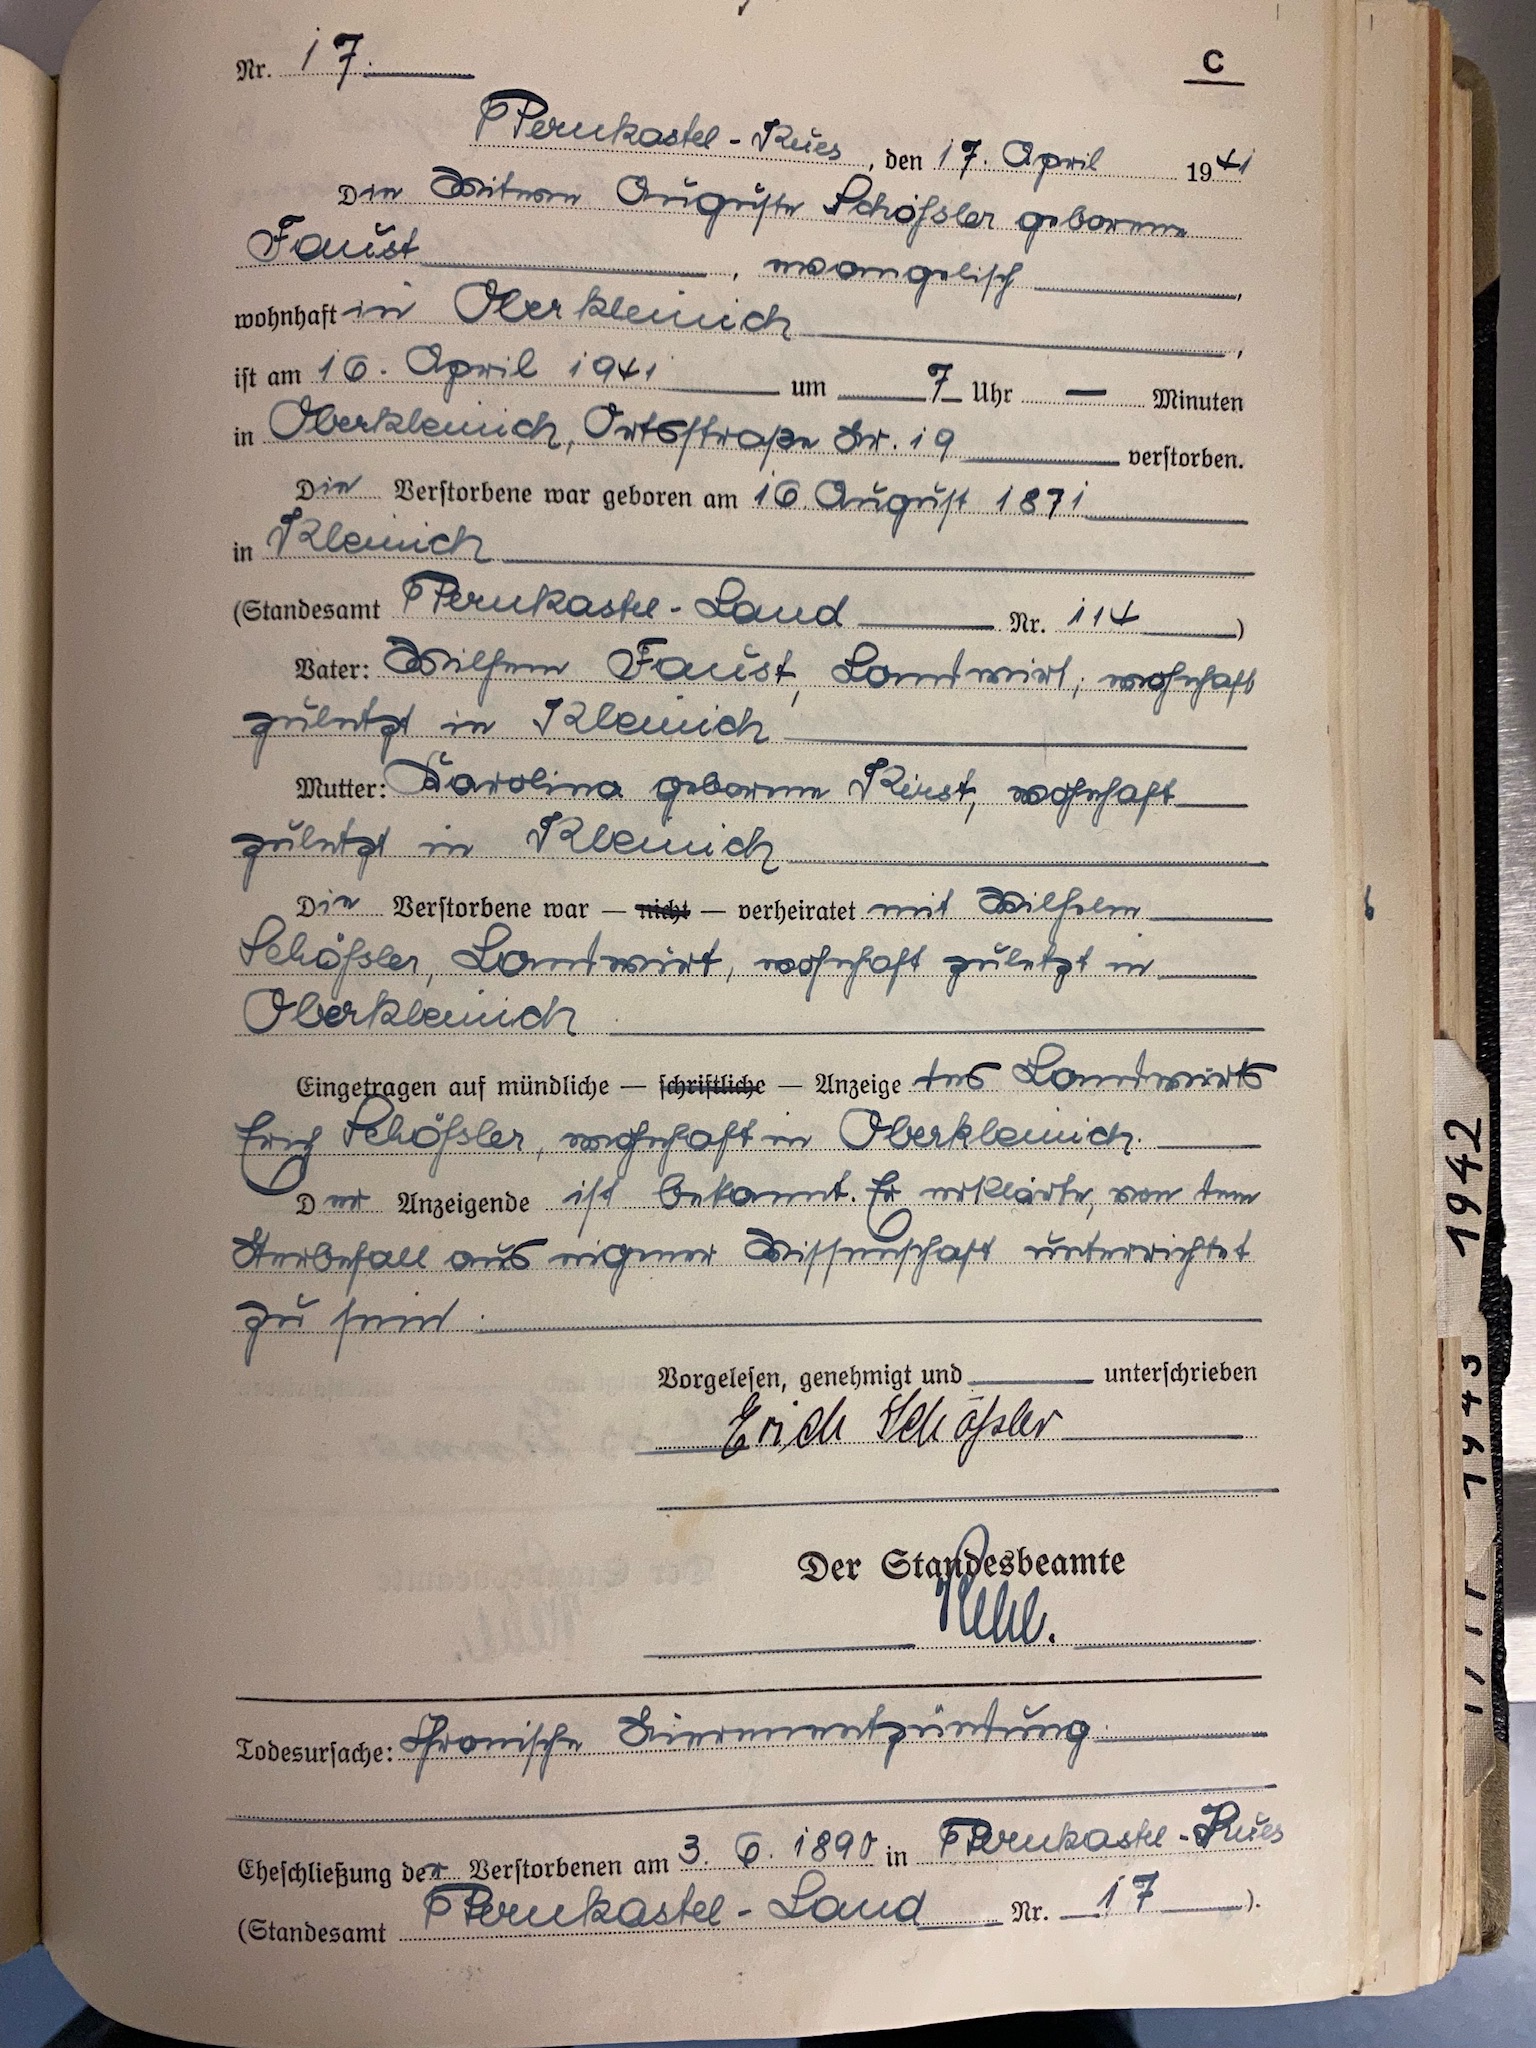 Nr. 17.
C
Bernkastel-Kues, den 17. April 1941
Die Witwe Auguste Schößler geborene
Faust, evangelisch,
wohnhaft in Oberkleinich,
ist am 16. April 1941 um 7 Uhr — Minuten
in Oberkleinich, Ortsstraße Nr. 19 verstorben.
Die Verstorbene war geboren am 16. August 1871
in Kleinich
(Standesamt Bernkastel-Land Nr. 114)
Vater: Wilhelm Faust, Landwirt, wohnhaft
zuletzt in Kleinich
Mutter: Karolina geborene Kirst, wohnhaft
zuletzt in Kleinich
Die Verstorbene war — nicht — verheiratet mit Wilhelm
Schößler, Landwirt, wohnhaft zuletzt in
Oberkleinich
Eingetragen auf mündliche — schriftliche — Anzeige des Landwirts
Erich Schößler, wohnhaft in Oberkleinich.
Der Anzeigende ist bekannt. Er erklärte, von dem
Sterbefall aus eigener Wissenschaft unterrichtet
zu sein.
Vorgelesen, genehmigt und unterschrieben
Erich Schößler
Der Standesbeamte
Todesursache: Chronische Nierenentzündung.
Eheschließung der Verstorbenen am 3. 6. 1890 in Bernkastel-Kues
(Standesamt Bernkastel-Land Nr. 17).
1942
1943